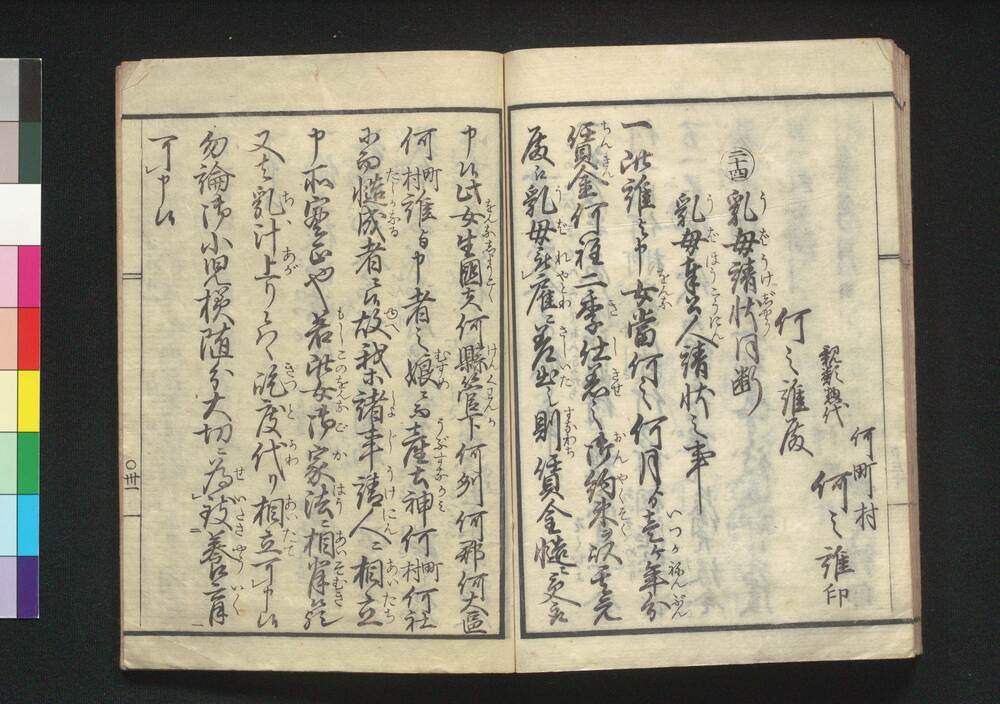 何町村
親類惣代 何之誰印
何之誰殿
三十四 乳母請状同断
乳母奉公人請状之事
一此誰と申女當何之何月ゟ壱ヶ年分
賃金何程二季仕着之御約束ヲ以其元
殿江乳母ニ雇ニ差出し則賃金慥ニ受取
申候此女生國者何縣管下何州何郡何大區
何町村誰与申者之娘ニ而産土神何町村何社
ニ而慥成者ニ候故我等諸事請人ニ相立
申所実正也若此女御家法ニ相背候歟
又者乳汁上り候ハヽ屹度代り相立可申候
勿論御小児様随分大切ニ為致養育
可申候
〇卅一